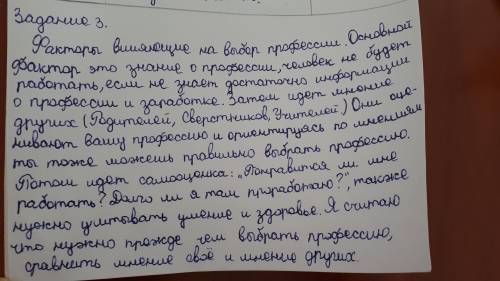 Задание 3.
Факторы влияющие на выбор профессии. Основной
фактор это знание о профессии, человек не будет
работать, если не знает достаточно информации
о профессии и заработке. Затем идет мнение
других (Родителей, Сверстников, Учителей.) Они оце-
нивают вашу профессию и ориентируясь по мнениям
ты тоже можешь правильно выбрать профессию.
Потом идет самооценка: „Понравится ли мне
работать? Долго ли я там приработаю?", также
нужно учитывать умение и здоровье. Я считаю
что нужно прежде чем выбрать профессию,
сравнить мнение своё и мнение других